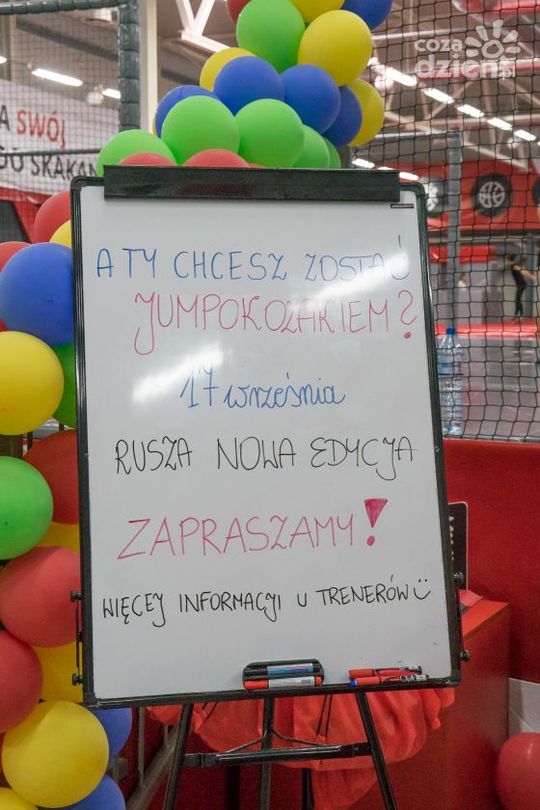 coza
dzień.pl
A SWÓJ
DO SKAKAN
A TY CHCESZ ZOSTAĆ
JUMPOKOZAKIEM?
17 września
RUSZA NOWA EDYCJA
ZAPRASZAMY!
WIĘCEJ INFORMACJI U TRENERÓW